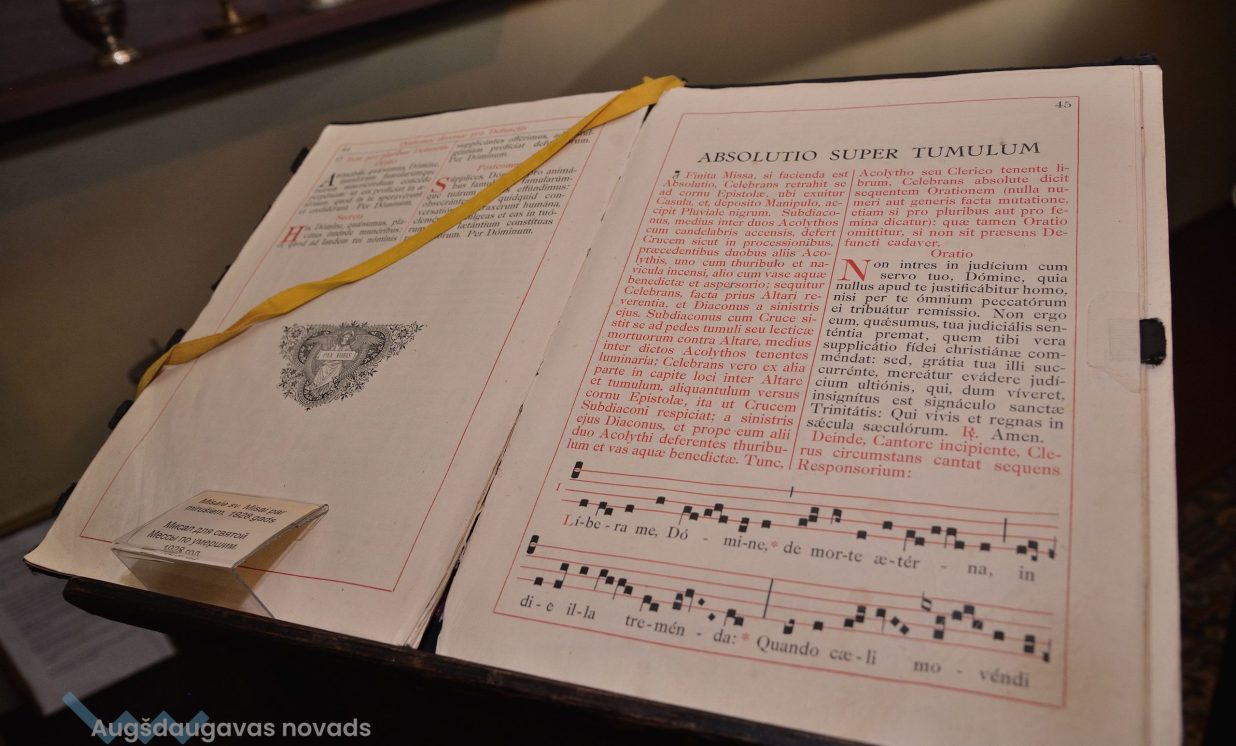 44
Orationes diversæ pro Defunctis
Oratio
Secreta
supplicántes offérimus,
Per Dóminum.
Postcommunio
Per Dóminum.
PAX VOBIS
Misale sv. Misai par
mirušiem. 1928.gads
Мисал для святой
Мессы по умершим.
1928 год.
45
ABSOLUTIO SUPER TUMULUM
Finita Missa, si facienda est
Absolutio, Celebrans retrahit se
ad cornu Epistolæ, ubi exuitur
Casula, et, deposito Manipulo, ac-
cipit Pluviale nigrum. Subdiaco-
nus, medius inter duos Acolythos
cum candelabris accensis, defert
Crucem sicut in processionibus,
præcedentibus duobus aliis Aco-
lythis, uno cum thuribulo et na-
vicula incensi, alio cum vase aquæ
benedictæ et aspersorio; sequitur
Celebrans, facta prius Altari re-
verentia, et Diaconus a sinistris
ejus. Subdiaconus cum Cruce si-
stit se ad pedes tumuli seu lecticæ
mortuorum contra Altare, medius
inter dictos Acolythos tenentes
luminaria; Celebrans vero ex alia
parte in capite loci inter Altare
et tumulum, aliquantulum versus
cornu Epistolæ, ita ut Crucem
Subdiaconi respiciat; a sinistris
ejus Diaconus, et prope eum alii
duo Acolythi deferentes thuribu-
lum et vas aquæ benedictæ. Tunc,
Acolytho seu Clerico tenente li-
brum, Celebrans absolute dicit
sequentem Orationem (nulla nu-
meri aut generis facta mutatione,
etiam si pro pluribus aut pro fe-
mina dicatur): quæ tamen Oratio
omittitur, si non sit præsens De-
functi cadaver.
Oratio
Non intres in judícium cum
servo tuo, Dómine, quia
nullus apud te justificábitur homo,
nisi per te ómnium peccatórum
ei tribuátur remíssio. Non ergo
eum, quǽsumus, tua judiciális sen-
téntia premat, quem tibi vera
supplicátio fídei christiánæ com-
méndat: sed, grátia tua illi suc-
currénte, mereátur evádere judí-
cium ultiónis, qui, dum víveret,
insignítus est signáculo sanctæ
Trinitátis: Qui vivis et regnas in
sǽcula sæculórum. ℟. Amen.
Deinde, Cantore incipiente, Cle-
rus circumstans cantat sequens
Responsorium:
Lí-be-ra me, Dó - mi-ne,* de mor-te æ-tér - na, in
di-e il-la tre-mén - da:* Quando cæ-li mo - véndi
Augšdaugavas novads